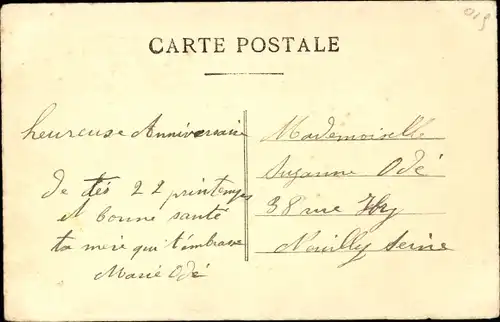 015
CARTE POSTALE
heureuse Anniversaire
de tes 22 printemps
et bonne santé
ta mère qui t'embrasse
Marie Odé
Mademoiselle
Suzanne Odé
38 rue
Neuilly Seine